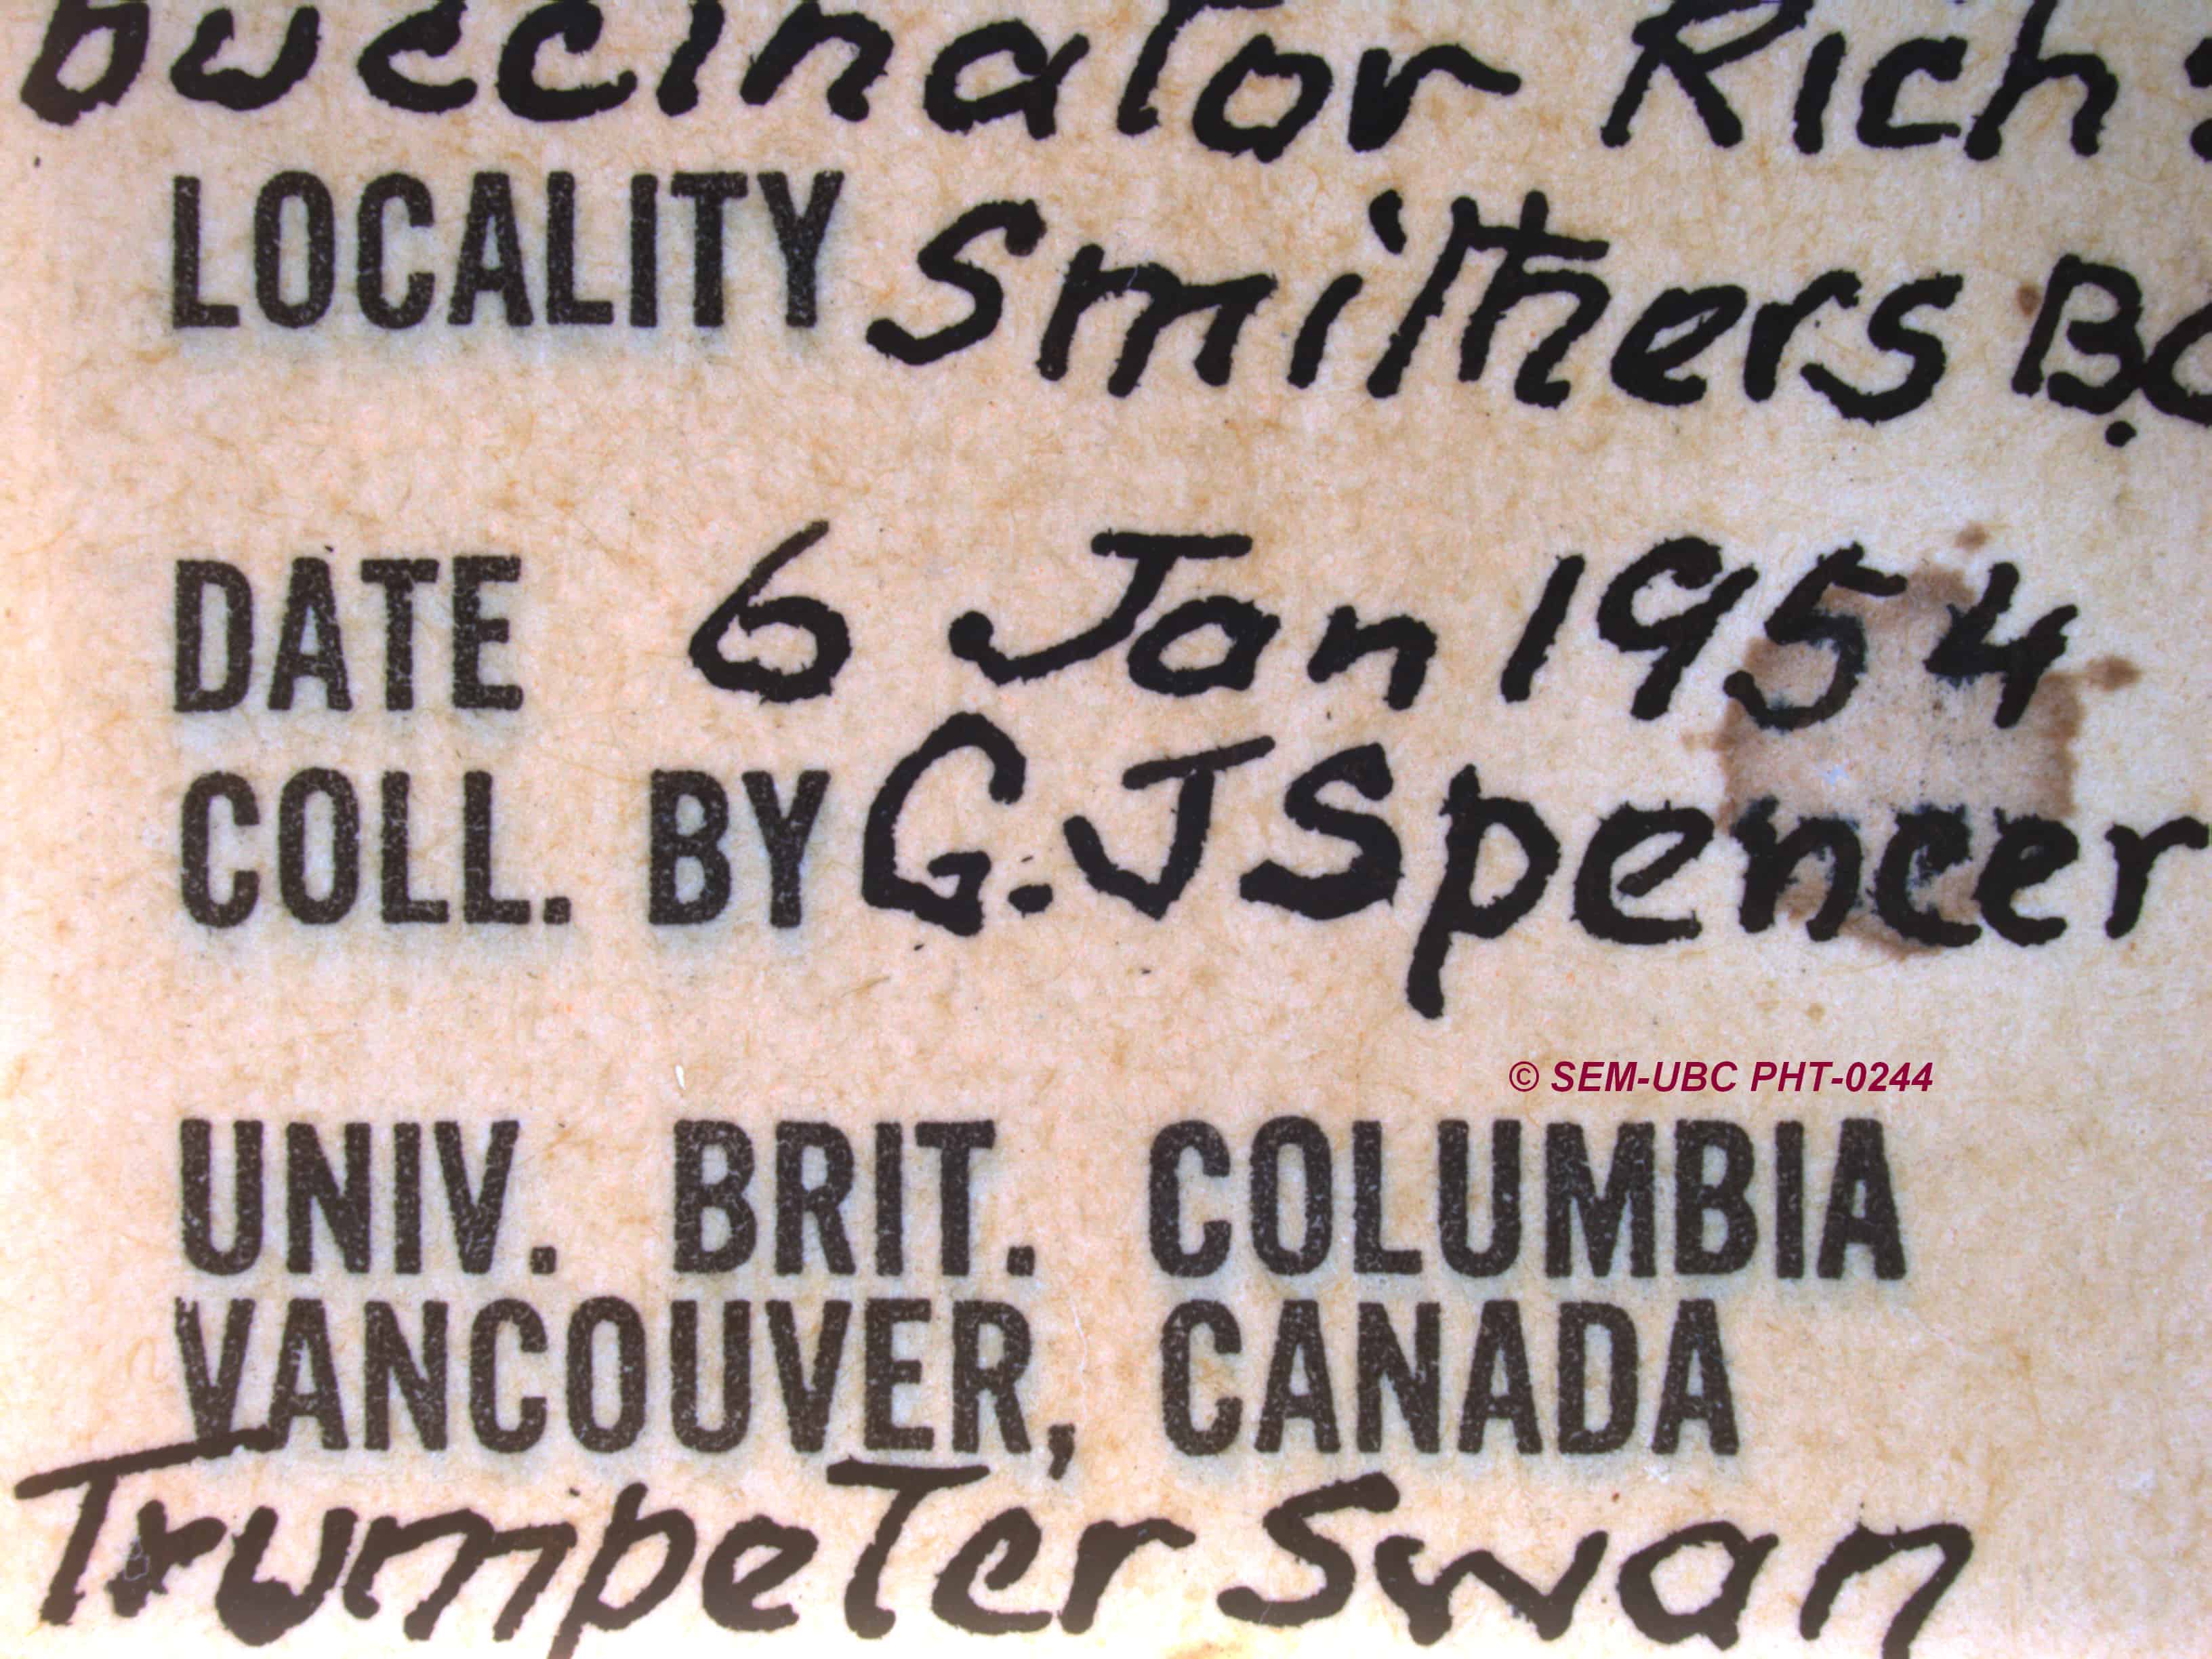 buccinator Rich
LOCALITY Smithers B.C
DATE 6 Jan 1954
COLL. BY G.J Spencer
© SEM-UBC PHT-0244
UNIV. BRIT. COLUMBIA
VANCOUVER, CANADA
Trumpeter Swan